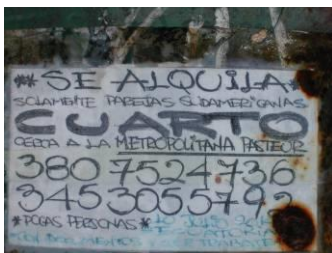 ** SE ALQUILA *
SOLAMENTE PAREJAS SUDAMERICANAS
CUARTO
CERCA A LA METROPOLITANA PASTEUR
380 7524736
345 3055792
*POCAS PERSONAS*